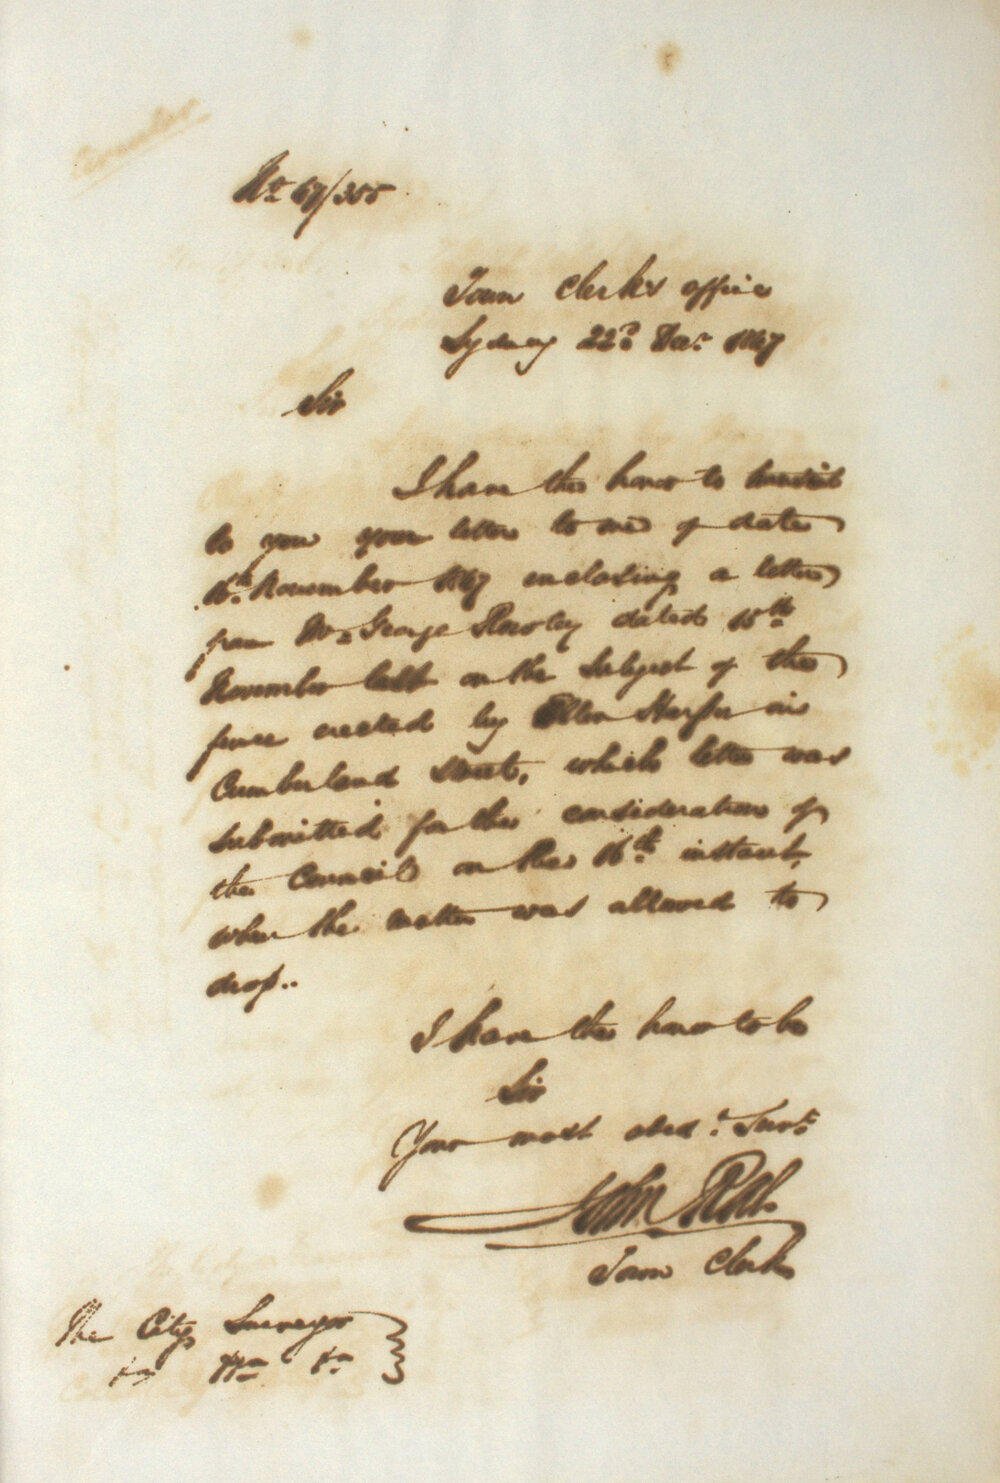 No. 67/355
Town Clerk's office
Sydney 22d. Decr. 1847
Sir
I have the honor to transmit
to you your letter to me of date
16th. November 1847 enclosing a letter
from Mr. George dated 15th
November last on the subject of the
fence erected by Ellen Harper in
Cumberland Street, which letter was
submitted for the consideration of
the Council on the 16th instant,
when the matter was allowed to
drop..
I have the honor to be
Sir
Your most obedt. Servt.
John
Town Clerk
The City Surveyor